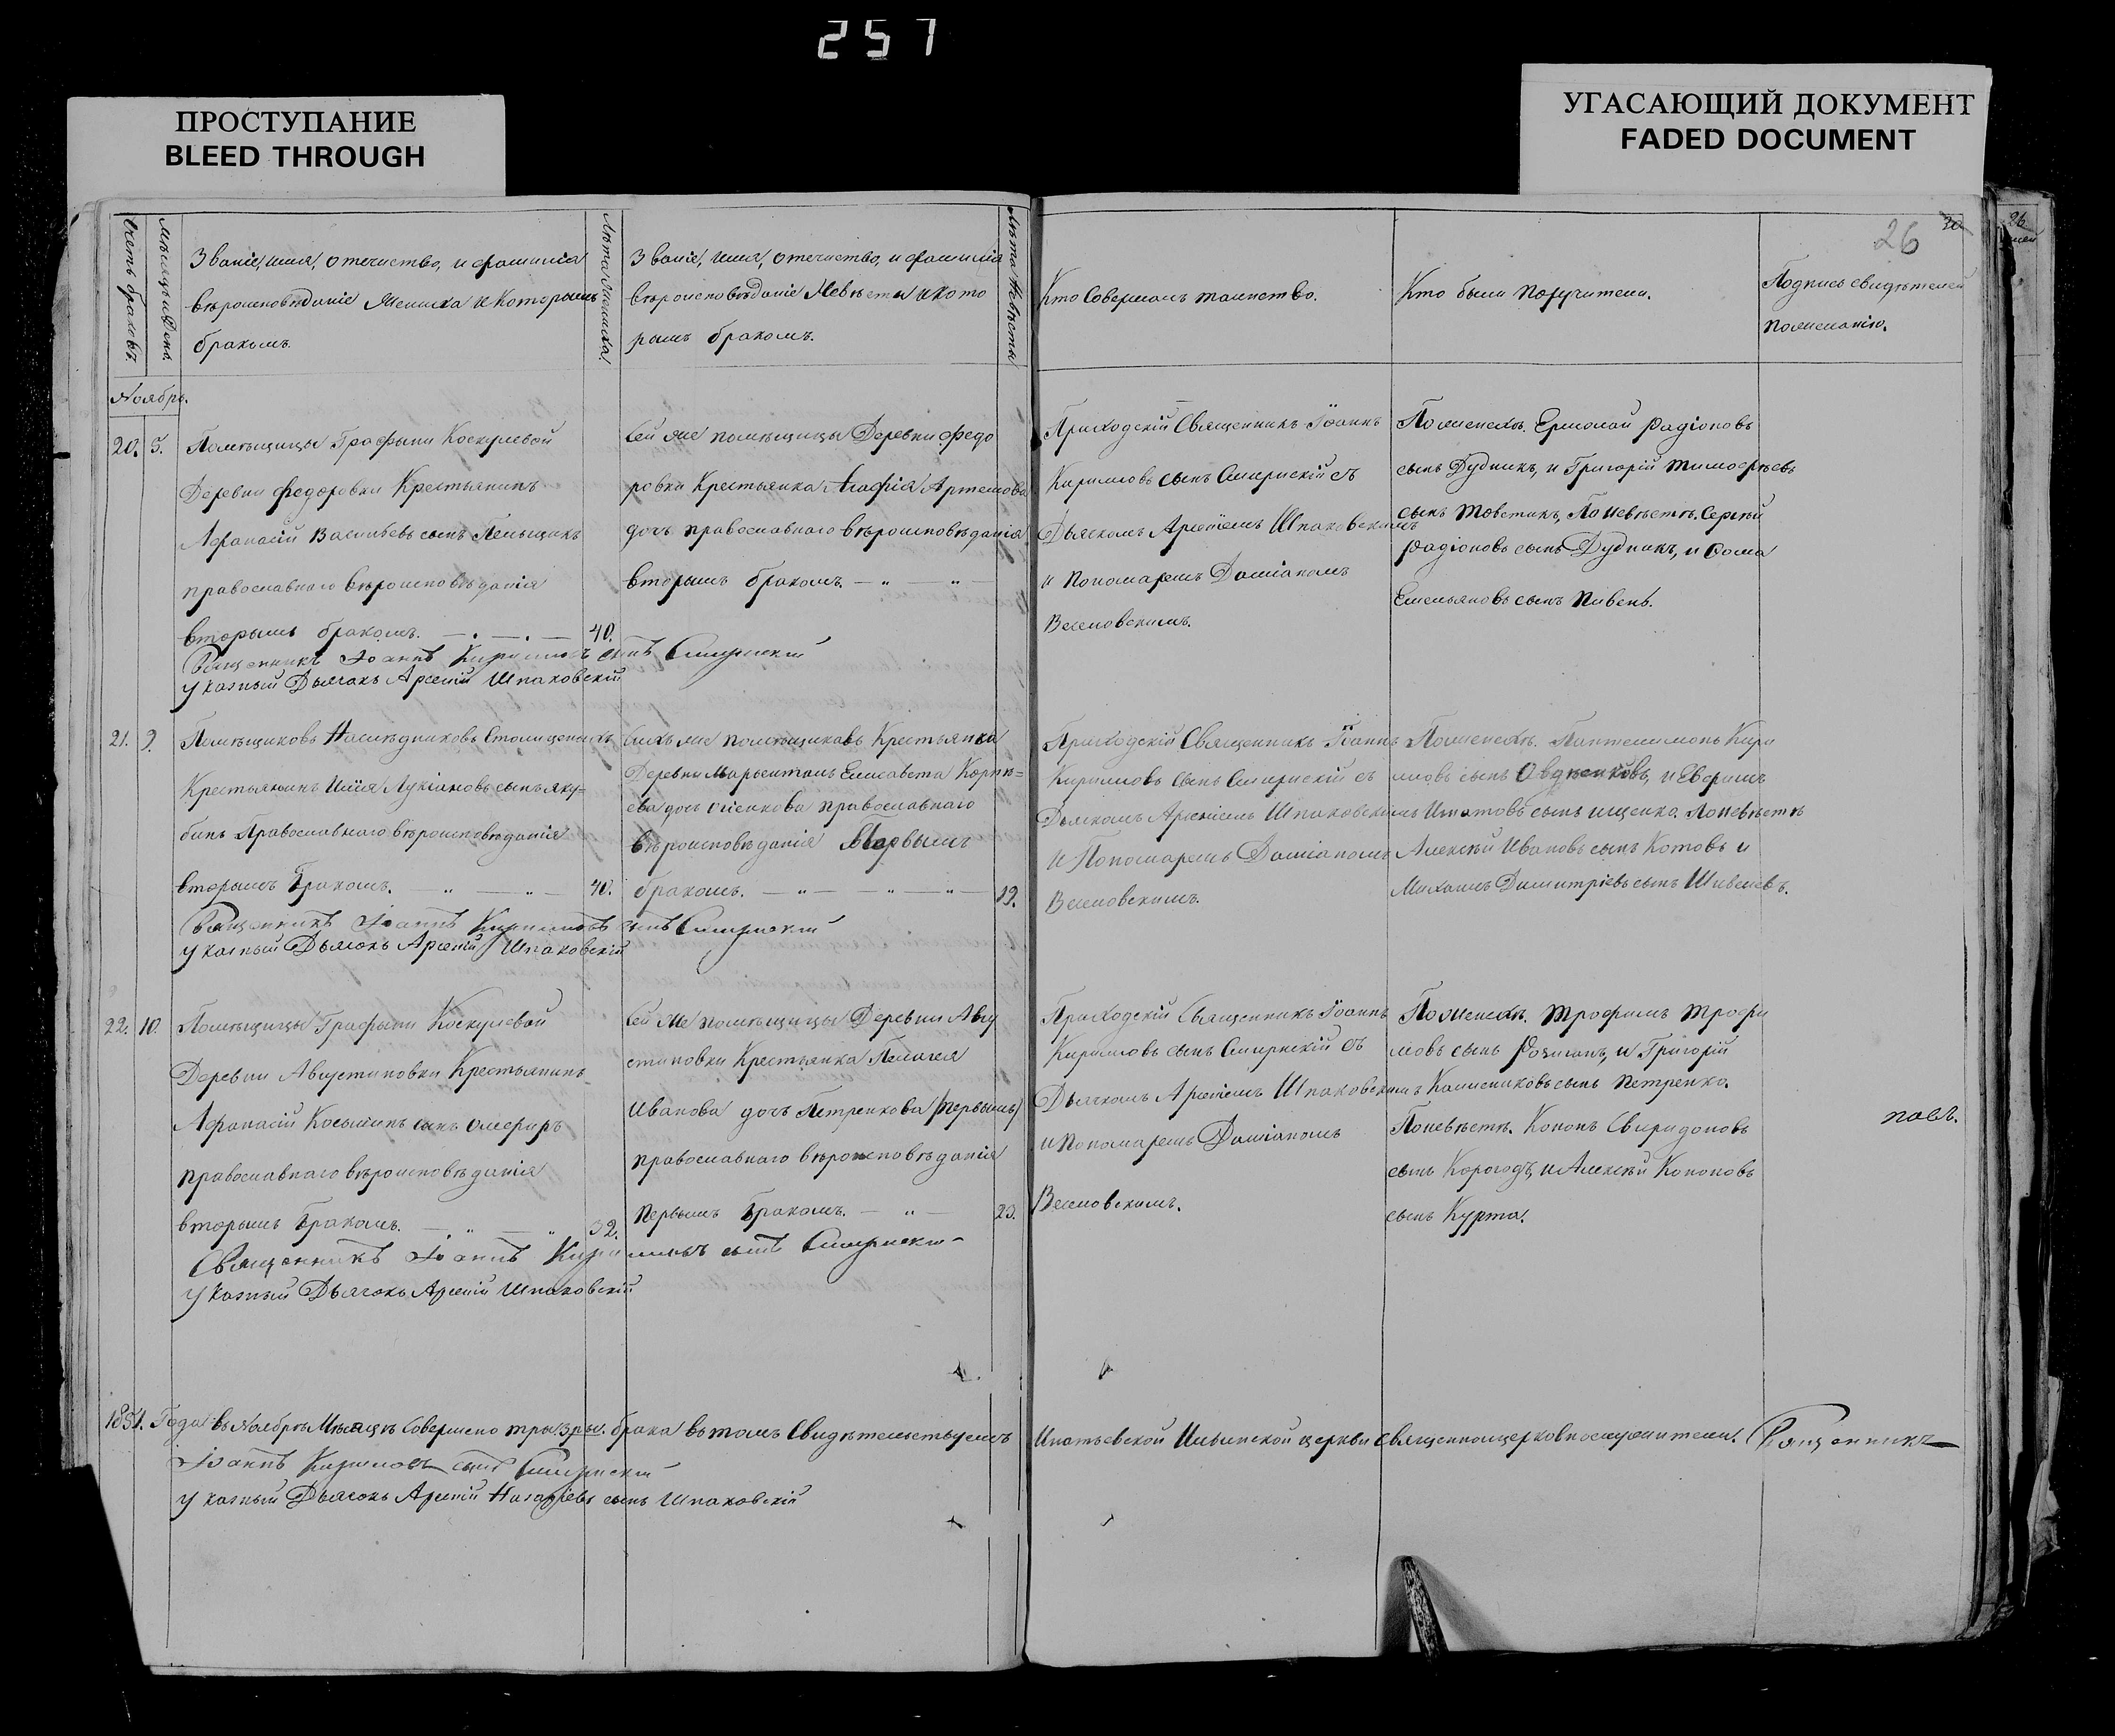 257
ПРОСТУПАНИЕ
BLEED THROUGH
УГАСАЮЩИЙ ДОКУМЕНТ
FADED DOCUMENT
26
Счетъ браковъ.
Мѣсяцъ и День.
Званіе, имя, отечество, и фамилія
вѣроисповѣданіе Жениха и Которымъ
бракомъ.
Лѣта Жениха.
Званіе, имя, отечество, и фамилія
вѣроисповѣданіе Невѣсты и кото
рымъ бракомъ.
Лѣта Невѣсты
Кто Совершалъ таинство.
Кто были Поручители.
Подпись свидѣтелей
по желанію.
Ноябрь.
20. 5.
Помѣщицы Графыни Коскулевой
Деревни Федоровки Крестьянинъ
Афанасій Васильевъ сынъ
православнаго вѣроисповѣданія
вторымъ бракомъ. 40.
Сей же помѣщицы Деревни Федо
ровки Крестьянка Агафія Артемова
дочь православнаго вѣроисповѣданія
вторымъ бракомъ.
Приходскій Священникъ Іоаннъ
Кириловъ сынъ Смирнскій съ
Дьячкомъ Арсеніемъ Шпаковскимъ
и Пономаремъ Даміаномъ
Веселовскимъ.
По женихѣ. Ермолай Радіоновъ
сынъ Дудникъ, и Григорій Тимофѣевъ
сынъ Товстикъ, По невѣстѣ. Сергѣй
Радіоновъ сынъ Дудникъ, и Фома
Емельяновъ сынъ Пивень.
Священникъ Іоаннъ Кириловъ сынъ Смирнскій
Указный Дьячокъ Арсеній Шпаковскій
21. 9.
Помѣщиковъ Наслѣдниковъ
Крестьянинъ Илія Лукіановъ сынъ Яку=
бинъ Православнаго вѣроисповѣданія
вторымъ бракомъ. 40.
Сихъ же помѣщиковъ Крестьянка
Деревни Елисавета Корнѣ=
ева дочь православнаго
вѣроисповѣданія Первымъ
бракомъ. 19.
Приходскій Священникъ Іоаннъ
Кириловъ сынъ Смирнскій съ
Дьячкомъ Арсеніемъ Шпаковскимъ
и Пономаремъ Даміаномъ
Веселовскимъ.
По женихѣ. Пантелимонъ Кири
ловъ сынъ и Ефримъ
Игнатовъ сынъ Ищенко. По невѣстѣ
Алексѣй Ивановъ сынъ Котовъ и
Михаилъ Димитріевъ сынъ
Священникъ Іоаннъ Кириловъ сынъ Смирнскій
Указный Дьячокъ Арсеній Шпаковскій
22. 10.
Помѣщицы Графыни Коскулевой
Деревни Августиновки Крестьянинъ
Афанасій Косьминъ сынъ
православнаго вѣроисповѣданія
вторымъ бракомъ. 32.
Сей же помѣщицы Деревни Авгу
стиновки Крестьянка Пелагея
Иванова дочь Петренкова (первымъ)
православнаго вѣроисповѣданія
первымъ бракомъ. 23.
Приходскій Священникъ Іоаннъ
Кириловъ сынъ Смирнскій съ
Дьячкомъ Арсеніемъ Шпаковскимъ
и Пономаремъ Даміаномъ
Веселовскимъ.
По женихѣ. Трофимъ Трофи
мовъ сынъ и Григорій
Калениковъ сынъ Петренко.
По невѣстѣ. Кононъ Свиридоновъ
сынъ Корогодъ, и Алексѣй Кононовъ
сынъ Курта.
Священникъ Іоаннъ Кириловъ сынъ Смирнскій
Указный Дьячокъ Арсеній Шпаковскій
1851. Года въ Ноябрѣ Мѣсяцѣ Совершено три брака въ томъ Свидѣтельствуемъ Игнатьевской Ильинской церкви священноцерковнослужители. Священникъ
Іоаннъ Кириловъ сынъ Смирнскій
Указный Дьячокъ Арсеній Назаріевъ сынъ Шпаковскій